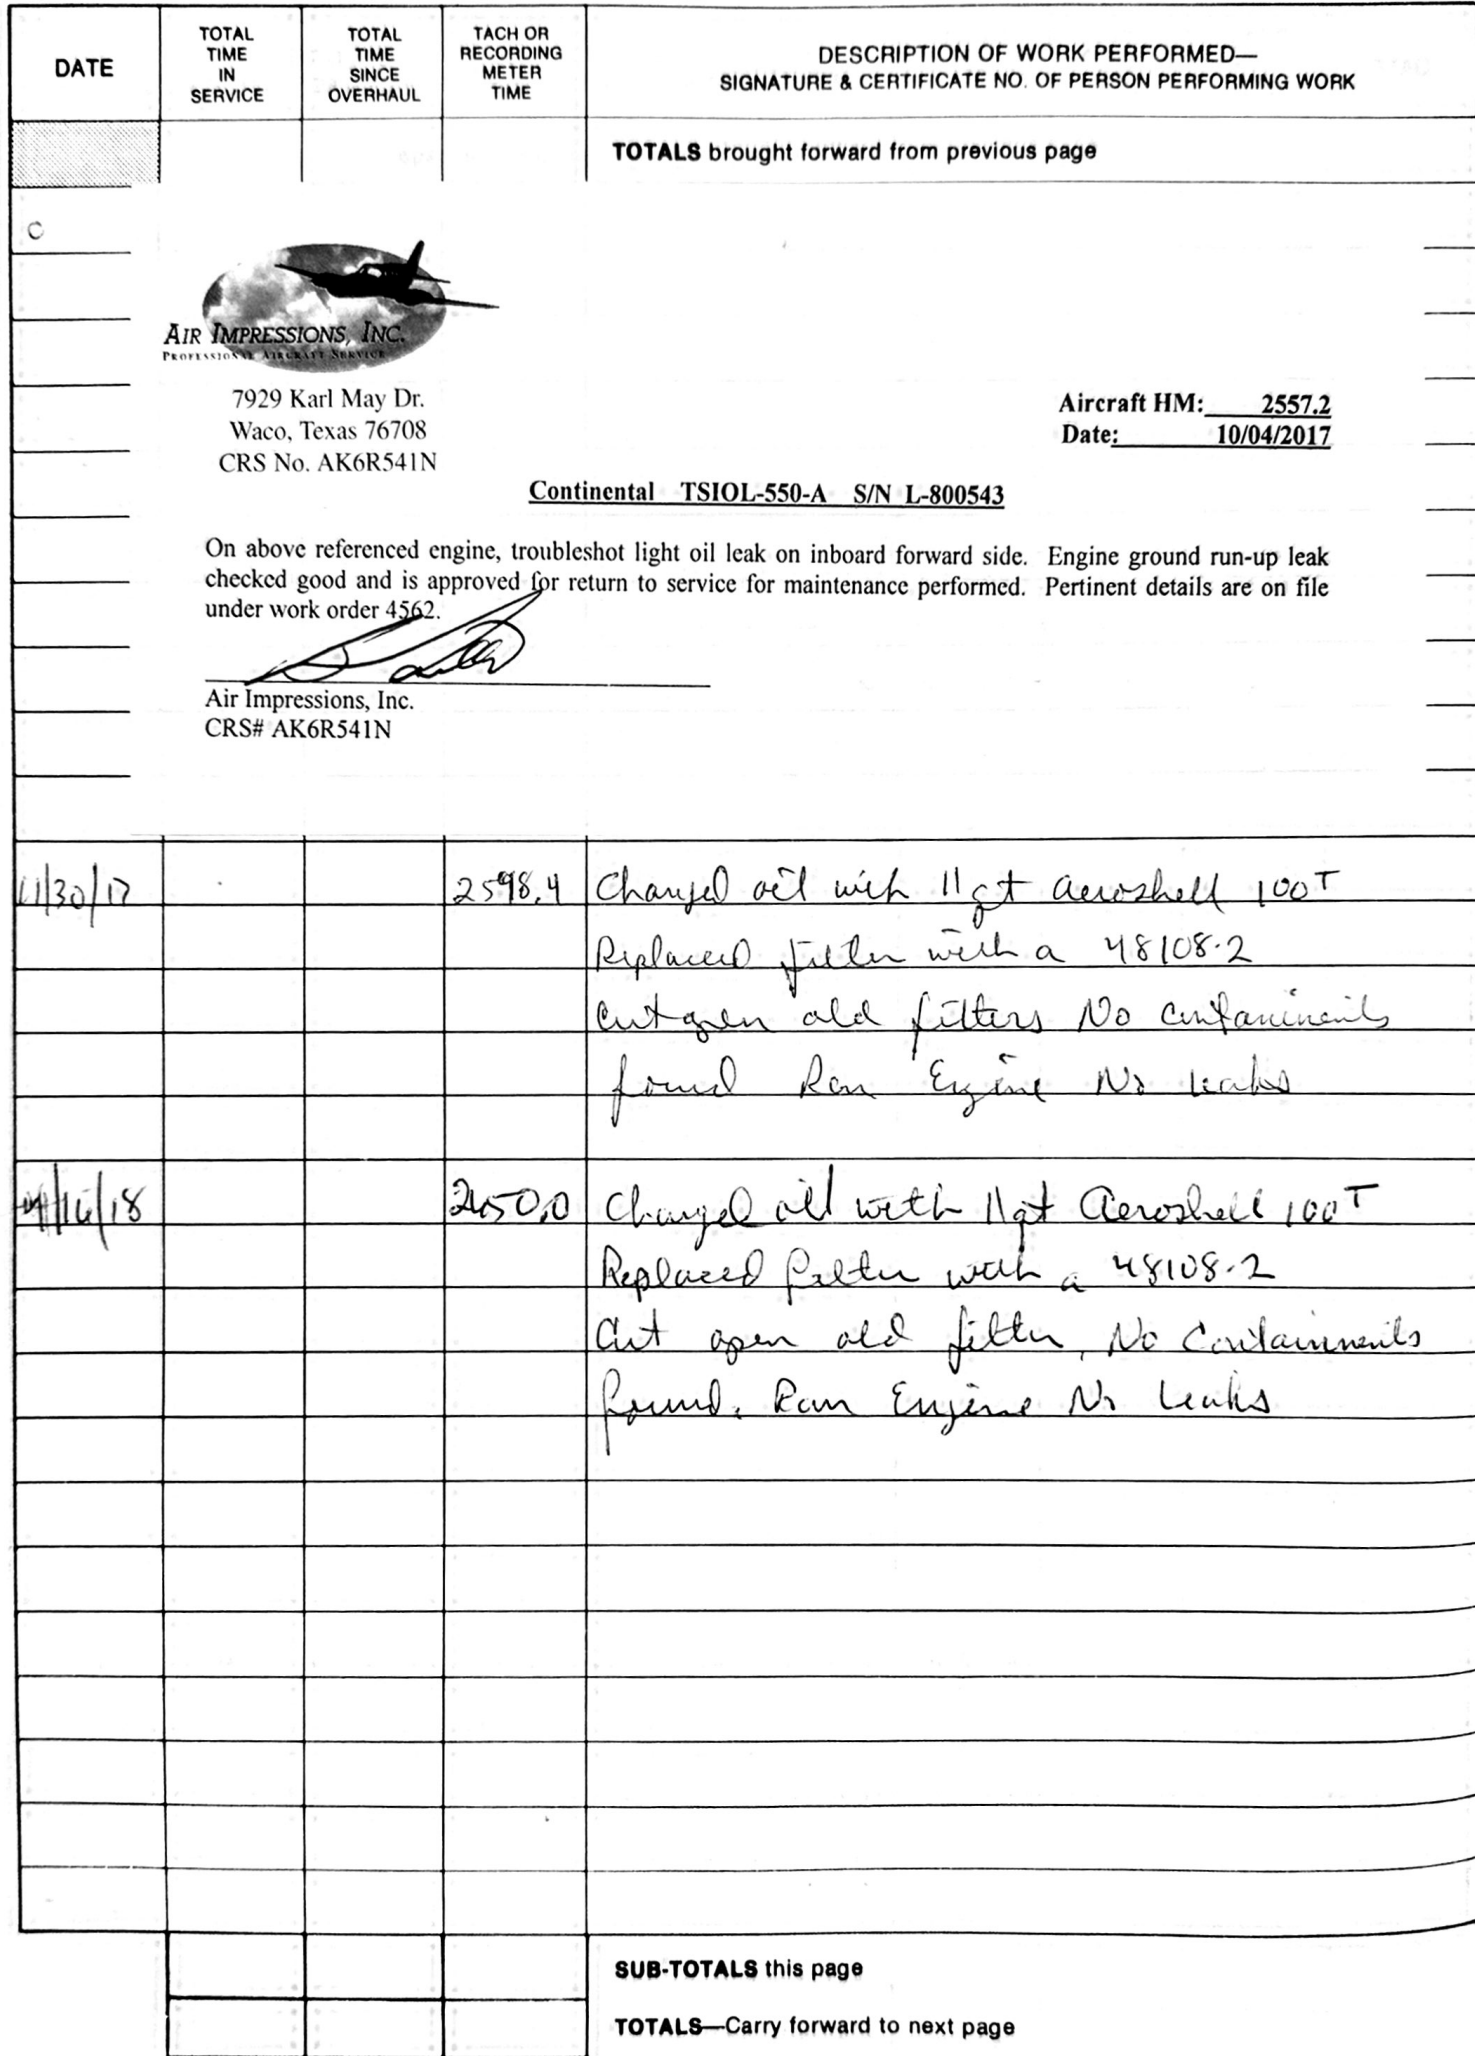 DATE
TOTAL TIME IN SERVICE
TOTAL TIME SINCE OVERHAUL
TACH OR RECORDING METER TIME
DESCRIPTION OF WORK PERFORMED—
SIGNATURE & CERTIFICATE NO. OF PERSON PERFORMING WORK
TOTALS brought forward from previous page
AIR IMPRESSIONS, INC.
PROFESSIONAL AIRCRAFT SERVICE
7929 Karl May Dr.
Waco, Texas 76708
CRS No. AK6R541N
Aircraft HM: 2557.2
Date: 10/04/2017
Continental TSIOL-550-A S/N L-800543
On above referenced engine, troubleshot light oil leak on inboard forward side. Engine ground run-up leak
checked good and is approved for return to service for maintenance performed. Pertinent details are on file
under work order 4562.
Air Impressions, Inc.
CRS# AK6R541N
11/30/17 2598.4 Changed oil with 11 qt Aeroshell 100T
Replaced filter with a 48108-2
Cut open old filters No contaminents
found Ran Engine No Leaks
/16/18 2650.0 Changed oil with 11qt Aeroshell 100T
Replaced filter with a 48108-2
Cut open old filter, No Containments
found. Ran Engine No Leaks
SUB-TOTALS this page
TOTALS—Carry forward to next page